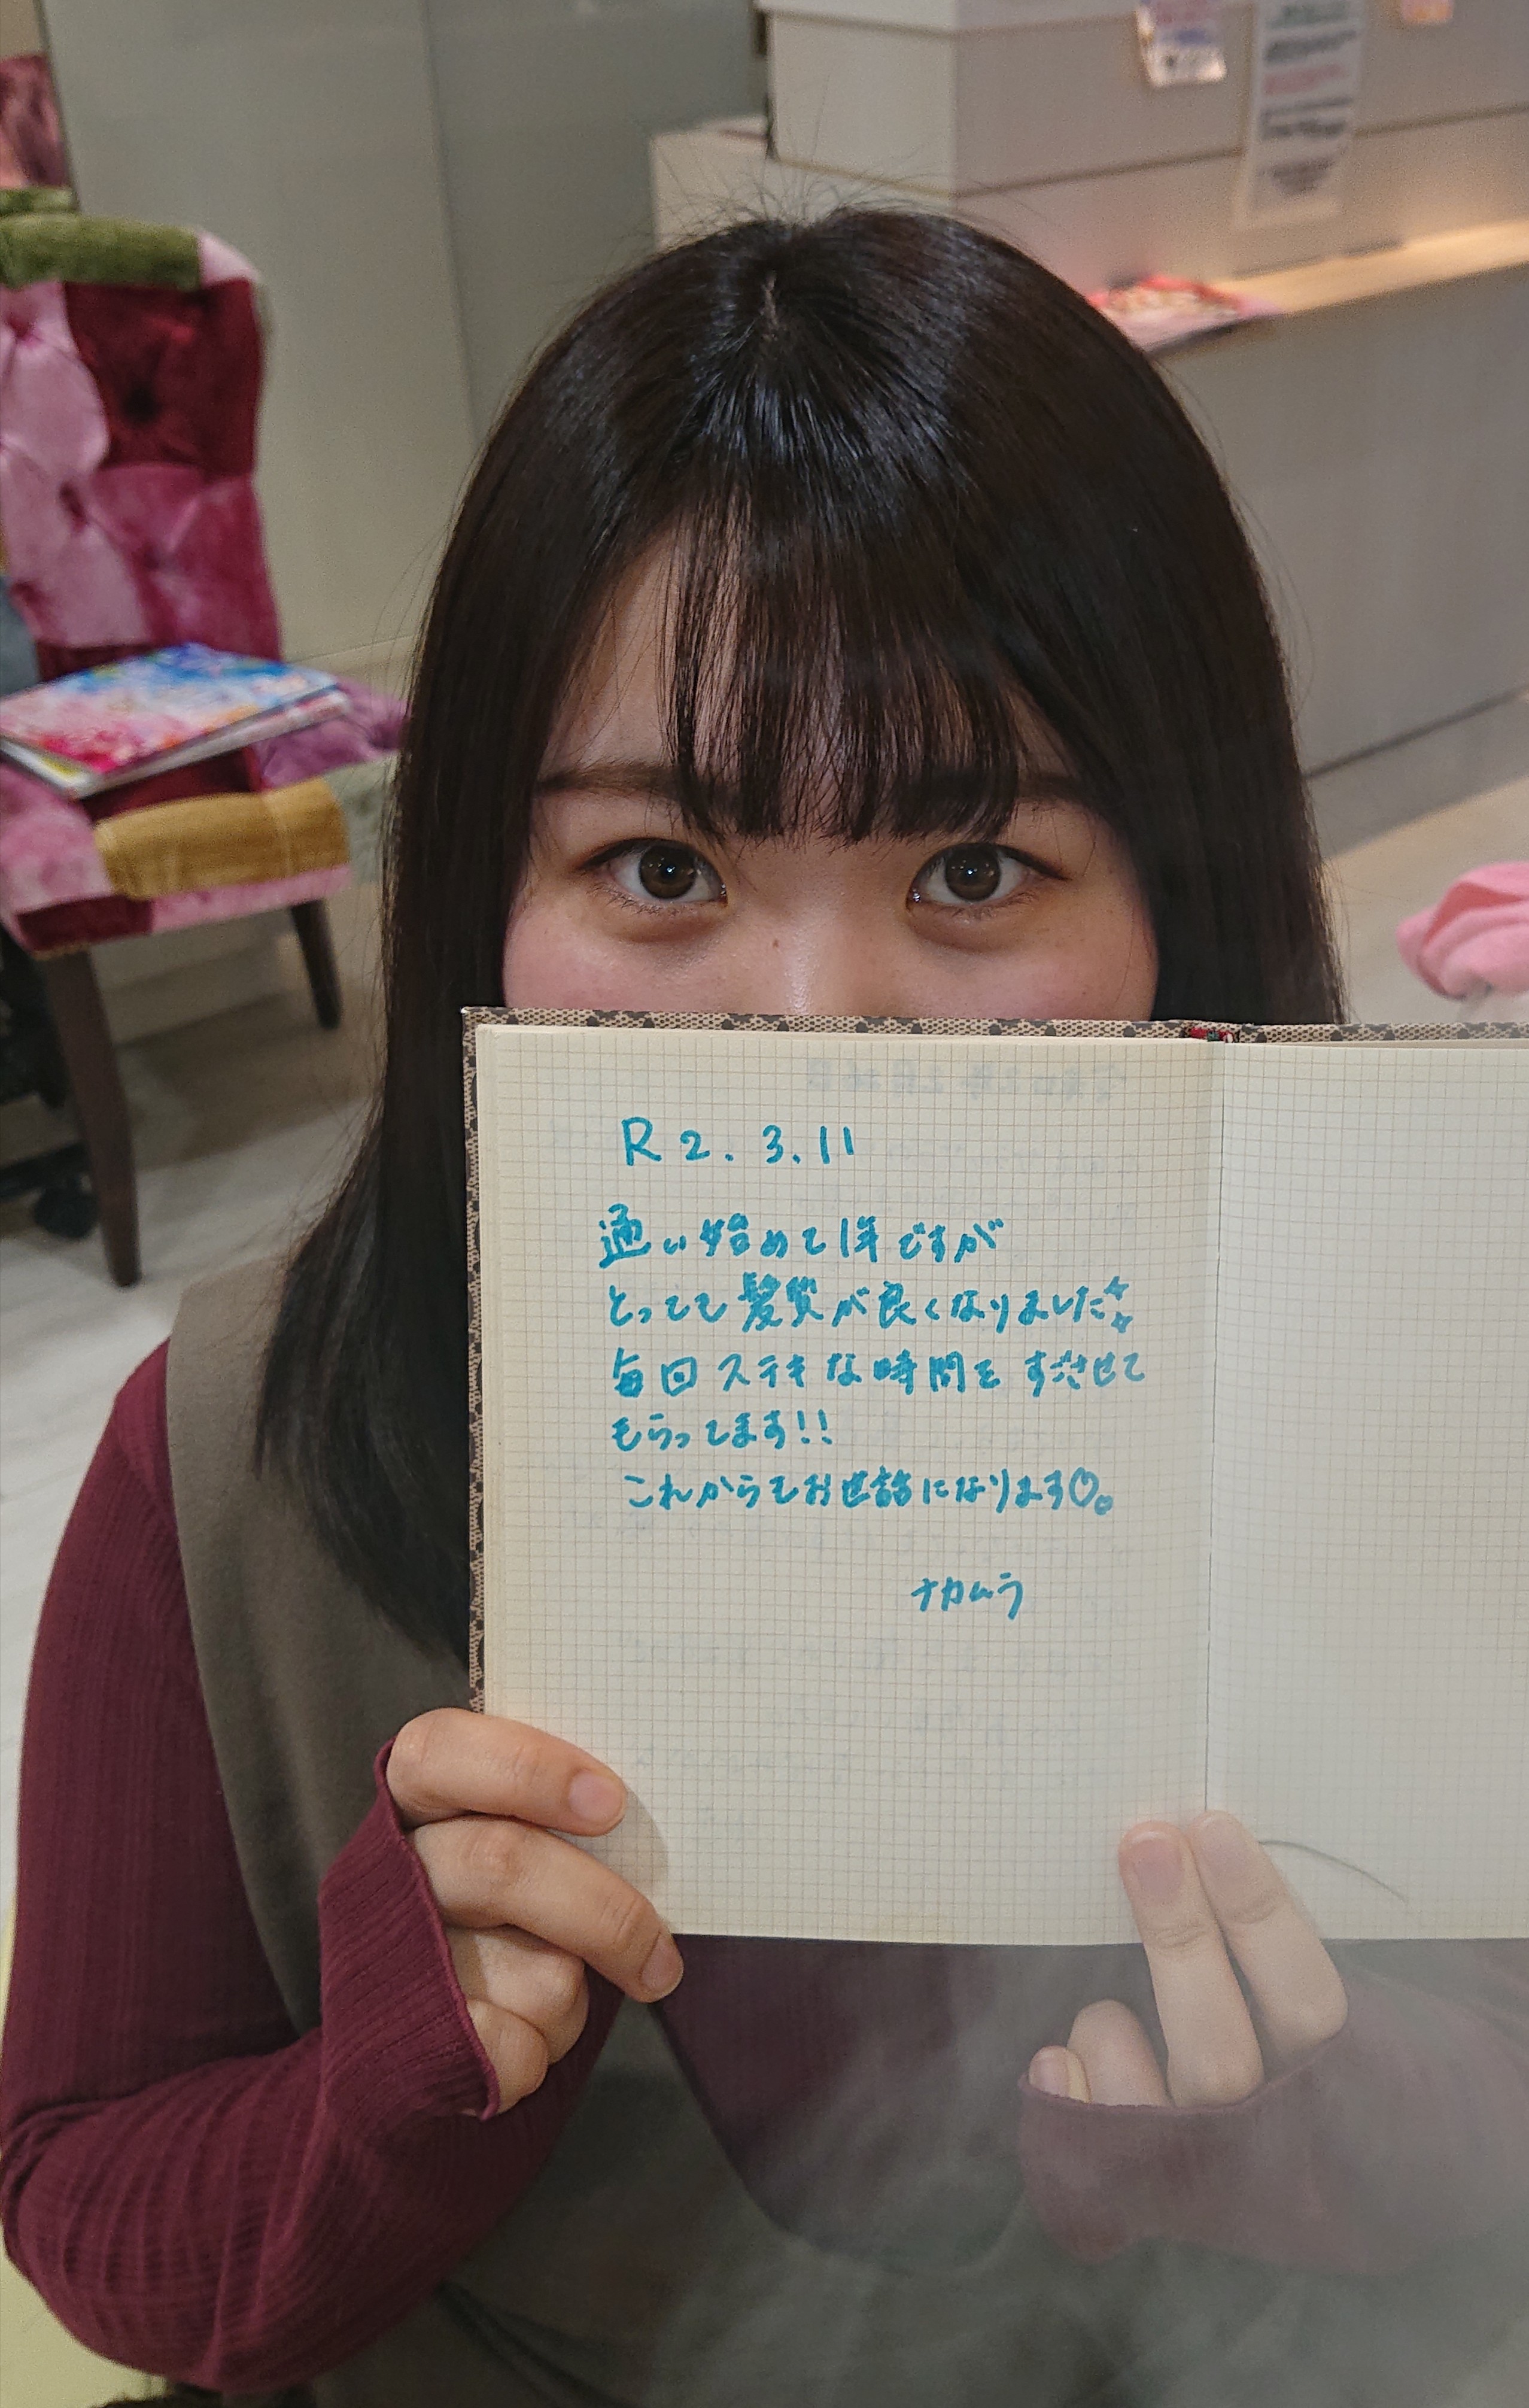 R2.3.11
通い始めて1年ですが
とっても髪質が良くなりました
毎回ステキな時間をすごさせて
もらってます!!
これからもお世話になります♡。
ナカムラ